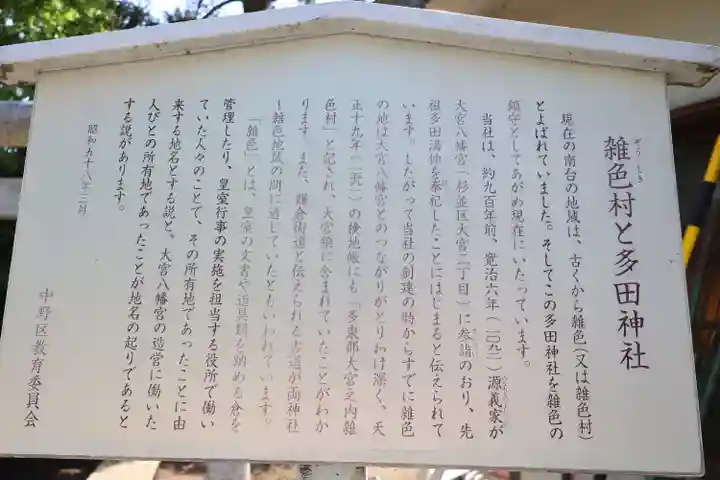 雑色村と多田神社
ぞうしき
現在の南台の地域は、古くから雑色（又は雑色村）
とよばれていました。そしてこの多田神社を雑色の
鎮守としてあがめ現在にいたっています。
当社は、約九百年前、寛治六年（一〇九二）源義家が
大宮八幡宮（杉並区大宮二丁目）に参詣のおり、先
祖多田満仲を奉祀したことにはじまると伝えられて
います。したがって当社の創建の時からすでに雑色
の地は大宮八幡宮とのつながりがとりわけ深く、天
正十九年（一五九一）の検地帳にも「多東郡大宮之内雑
色村」と記され、大宮領に含まれていたことがわか
ります。また、鎌倉街道と伝えられる古道が両神社
～雑色地域の間に通していたともいわれています。
「雑色」とは、皇室の文書や道具類を納める倉を
管理したり、皇室行事の実施を担当する役所で働い
ていた人々のことで、その所有地であったことに由
来する地名とする説と、大宮八幡宮の造営に働いた
人びとの所有地であったことが地名の起りであると
する説があります。
昭和五十八年三月
中野区教育委員会